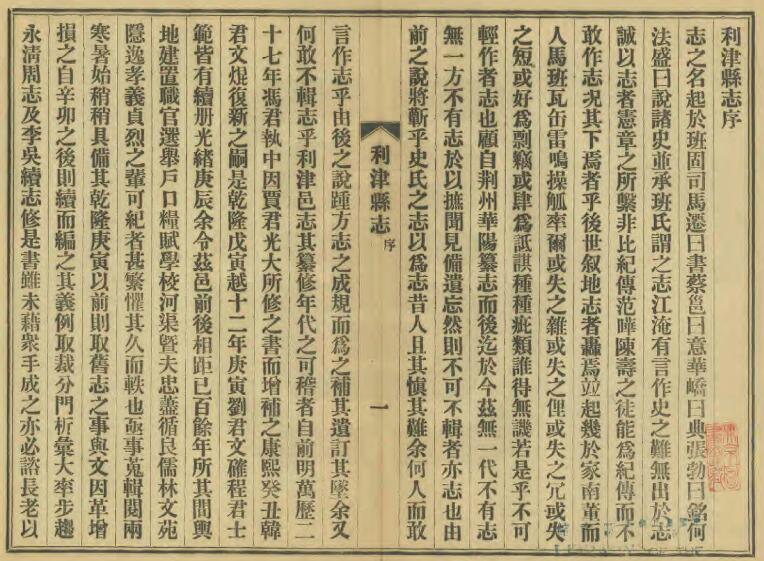 利津縣志序
志之名起於班固司馬遷曰書蔡邕曰意華嶠曰典張勃曰銘何
法盛曰說諸史並承班氏謂之志江淹有言作史之難無出於志
誠以志者憲章之所繫非比紀傳范曄陳壽之徒能爲紀傳而不
敢作志况其下焉者乎後世叙地志者轟焉竝起幾於家南董而
人馬班瓦缶雷鳴操觚率爾或失之雜或失之俚或失之冗或失
之短或好爲剽竊或肆爲詆諆種種疵類誰得無譏若是乎不可
輕作者志也顧自荆州華陽纂志而後迄於今茲無一代不有志
無一方不有志於以摭聞見備遺忘然則不可不輯者亦志也由
前之說將蘄乎史氏之志以爲志昔人且其愼其難余何人而敢
利津縣志
序
一
言作志乎由後之說踵方志之成規而爲之補其遺訂其墜余又
何敢不輯志乎利津邑志其纂修年代之可稽者自前明萬歷二
十七年馮君執中因賈君光大所修之書而增補之康熙癸丑韓
君文焜復新之嗣是乾隆戊寅越十二年庚寅劉君文確程君士
範皆有續册光緒庚辰余令茲邑前後相距已百餘年所其間輿
地建置職官選舉戶口糧賦學校河渠暨夫忠藎循良儒林文苑
隱逸孝義貞烈之輩可紀者甚繁懼其久而軼也亟事蒐輯閱兩
寒暑始稍稍具備其乾隆庚寅以前則取舊志之事與文因革增
損之自辛卯之後則續而編之其義例取裁分門析彙大率步趨
永淸周志及李吳續志修是書雖未藉衆手成之亦必諮長老以